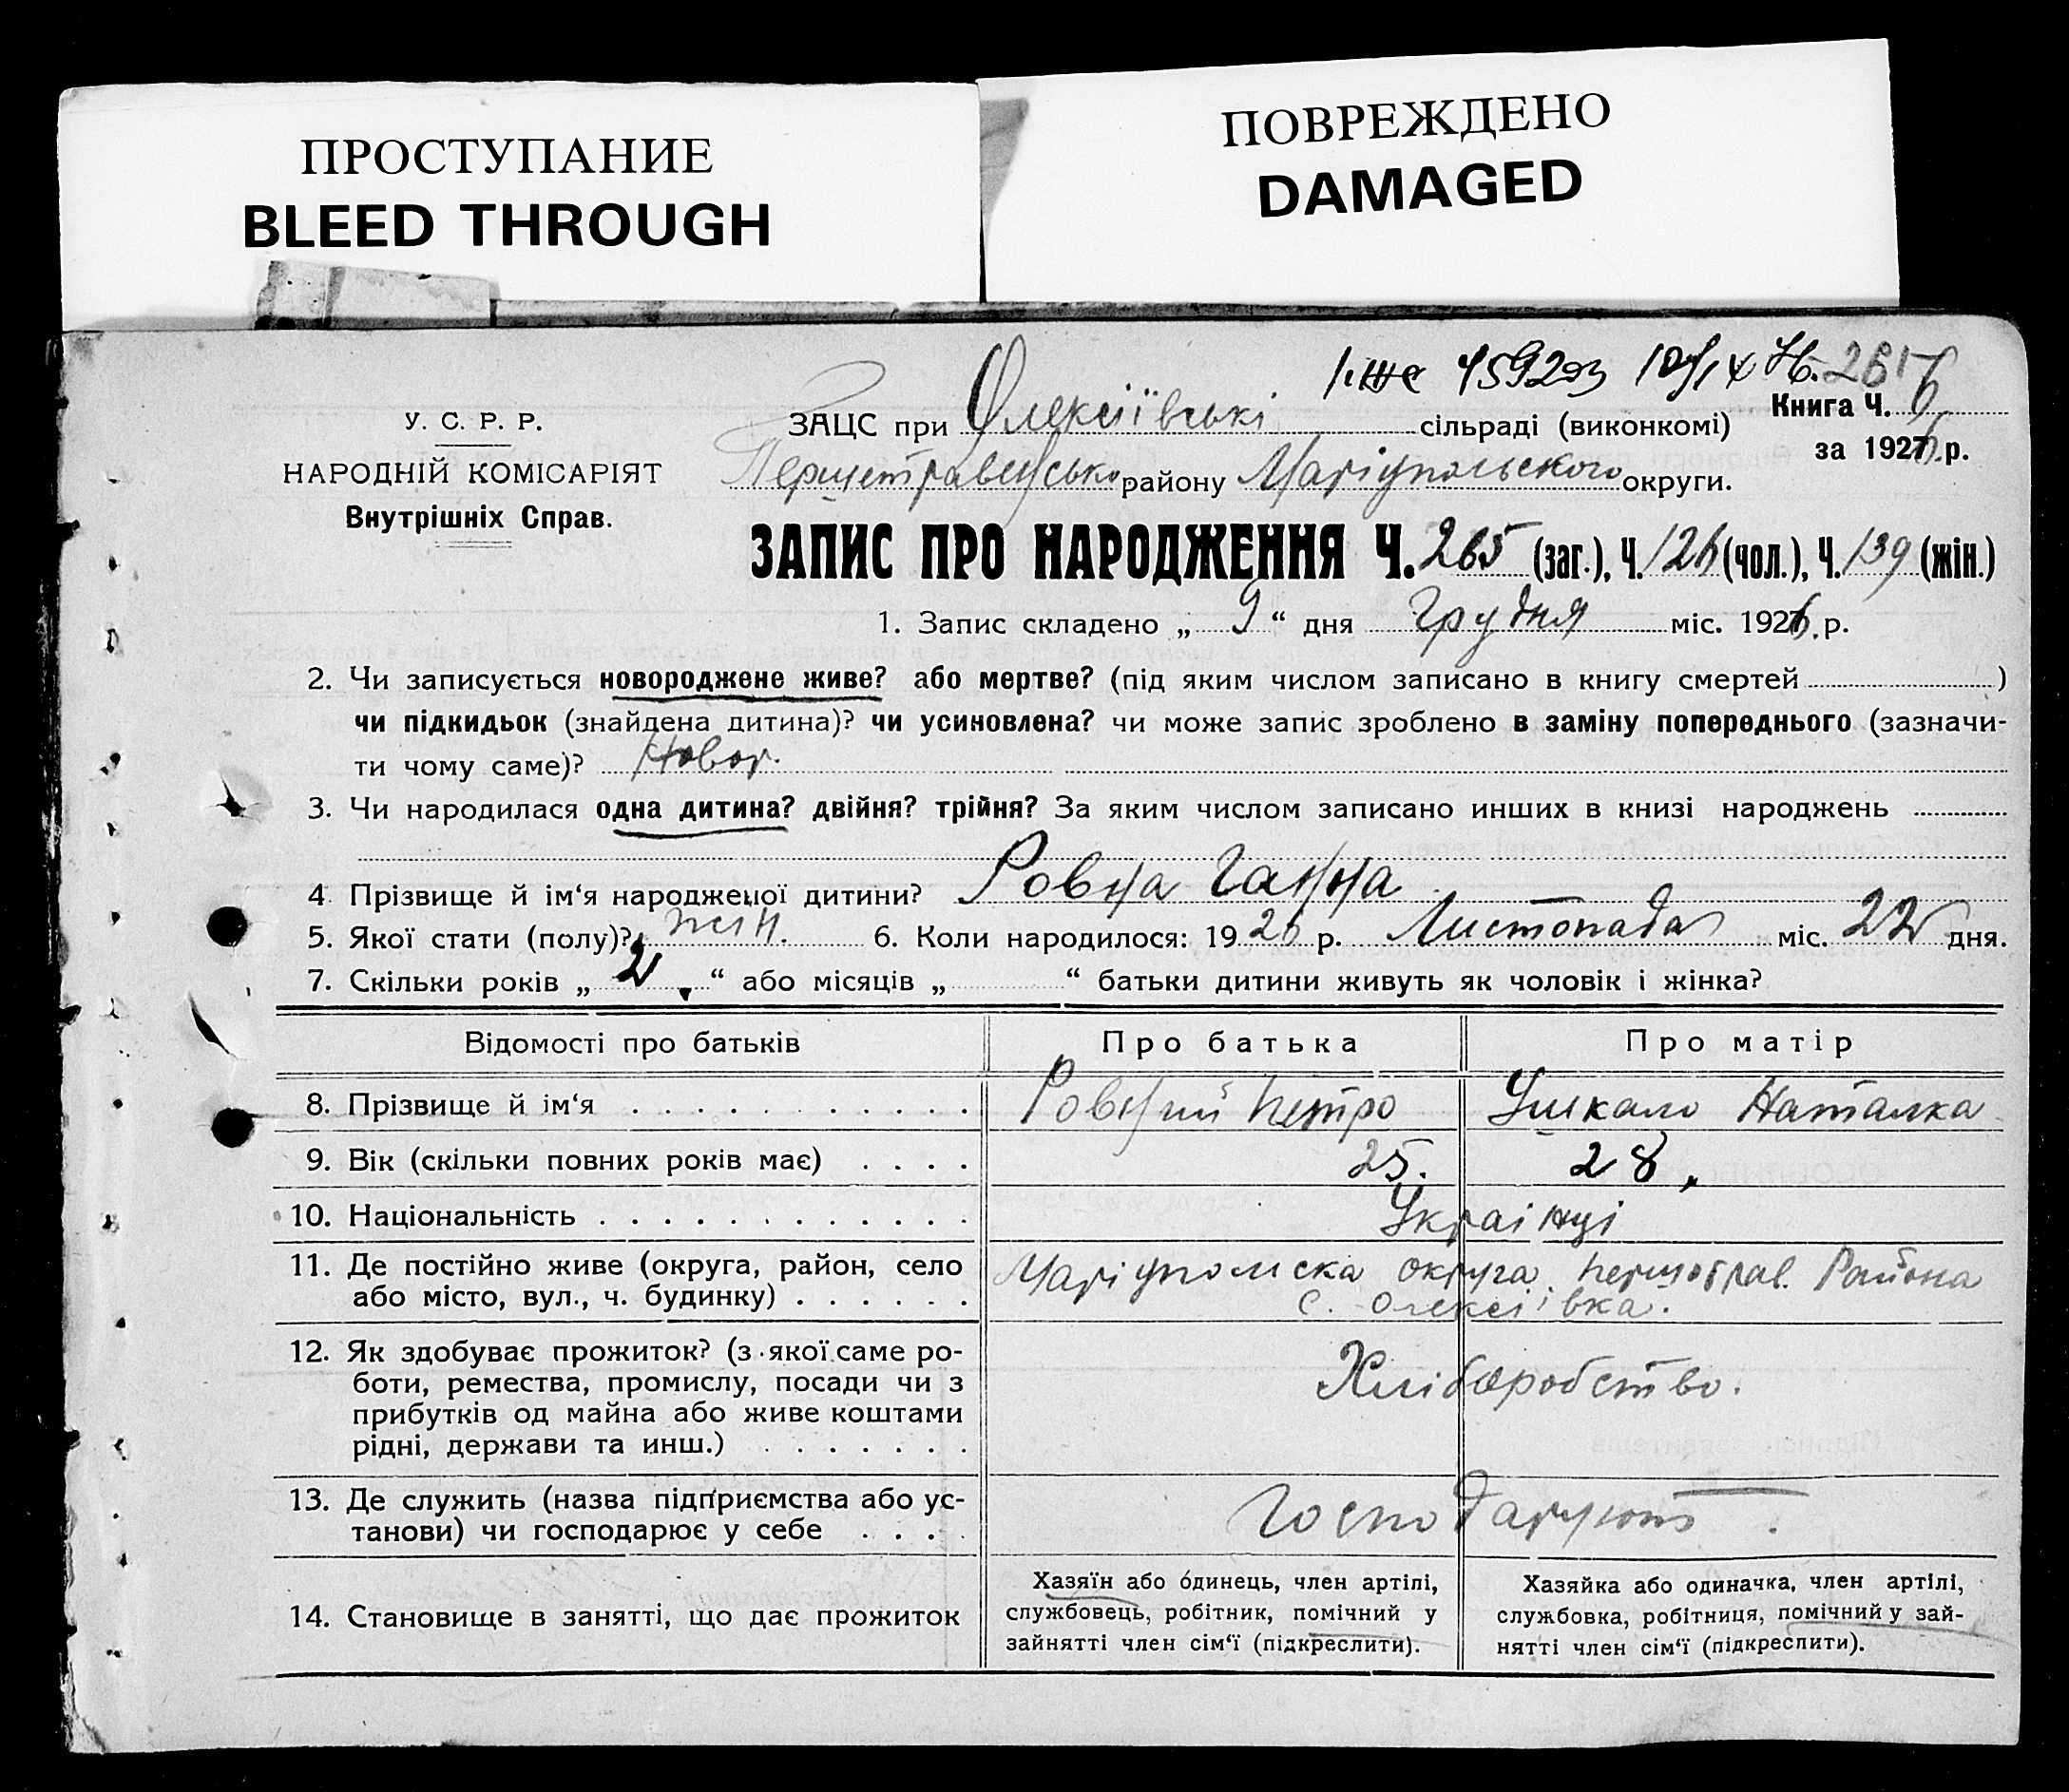 ПРОСТУПАНИЕ
BLEED THROUGH
ПОВРЕЖДЕНО
DAMAGED
У. С. Р. Р.
НАРОДНІЙ КОМІСАРІЯТ
Внутрішніх Справ.
ЗАЦС при Олексіївські сільраді (виконкомі)
Книга Ч. 6
за 1926 р.
Першетравенсько району Маріупольского округи.
ЗАПИС ПРО НАРОДЖЕННЯ Ч. 265 (заг.), Ч. 126 (чол.), Ч. 139 (жін.)
1. Запис складено „ 9 “ дня Грудня міс. 1926 р.
2. Чи записується новороджене живе? або мертве? (під яким числом записано в книгу смертей )
чи підкидьок (знайдена дитина)? чи усиновлена? чи може запис зроблено в заміну попереднього (зазначи-
ти чому саме)? Новор.
3. Чи народилася одна дитина? двійня? трійня? За яким числом записано инших в книзі народжень
4. Прізвище й ім‘я народженої дитини? Ровна Ганна
5. Якої стати (полу)? жін. 6. Коли народилося: 1926 р. Листопада міс. 22 дня.
7. Скільки років „ 2 “ або місяців „ “ батьки дитини живуть як чоловік і жінка?
Відомості про батьків Про батька Про матір
8. Прізвище й ім‘я Ровний Петро Ушкало Наталка
9. Вік (скільки повних років має) 25. 28.
10. Національність Украінці
11. Де постійно живе (округа, район, село Маріуполска округа першотрав. Района
або місто, вул., ч. будинку) с. Олексіівка.
12. Як здобуває прожиток? (з якої саме ро-
боти, ремества, промислу, посади чи з Хліборобство.
прибутків од майна або живе коштами
рідні, держави та инш.)
13. Де служить (назва підприємства або ус-
танови) чи господарює у себе Господарують.
14. Становище в занятті, що дає прожиток
Хазяїн або одинець, член артілі,
службовець, робітник, помічний у
зайнятті член сім‘ї (підкреслити).
Хазяйка або одиначка, член артілі,
службовка, робітниця, помічний у зай-
нятті член сім‘ї (підкреслити).